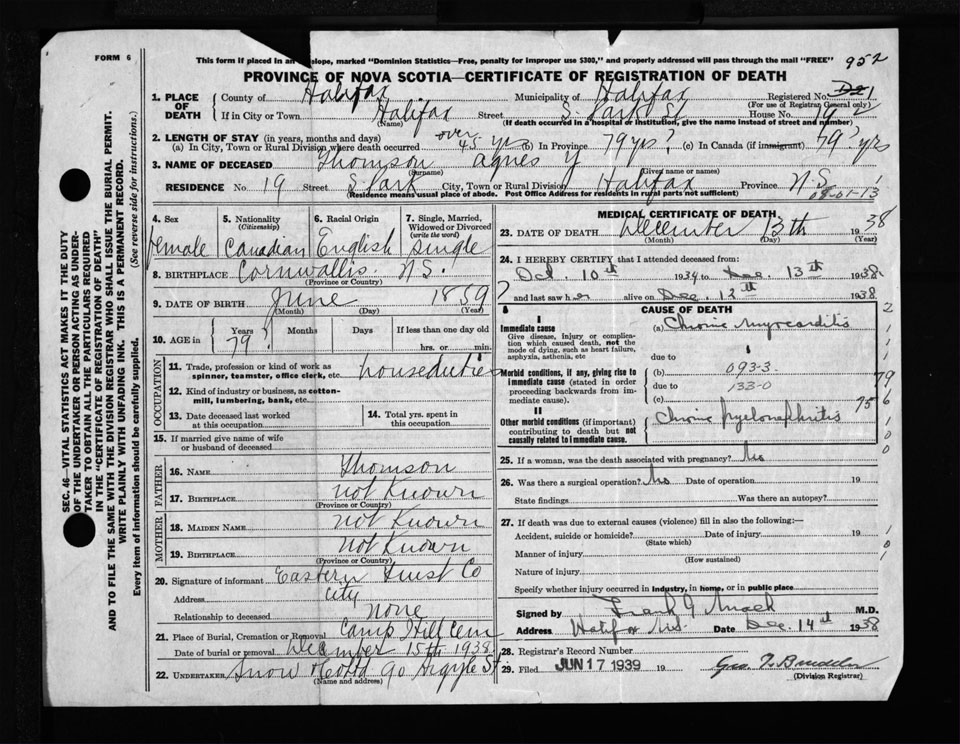 FORM 6
This form if placed in an lope, marked "Dominion Statistics—Free, penalty for improper use $300," and properly addressed will pass through the mail "FREE" 952
PROVINCE OF NOVA SCOTIA—CERTIFICATE OF REGISTRATION OF DEATH
1. PLACE OF DEATH County of Halifax Municipality of Halifax Registered No.
(For use of Registrar General only)
If in City or Town Halifax Street S Park St House No. 19
(Name) (If death occurred in a hospital or institution, give the name instead of street and number)
2. LENGTH OF STAY (in years, months and days)
(a) In City, Town or Rural Division where death occurred over 45 yrs (b) In Province 79 yrs? (c) In Canada (if immigrant) 79? yrs
3. NAME OF DECEASED Thomson Agnes Y
(Surname) (Given name or names)
RESIDENCE No. 19 Street S Park City, Town or Rural Division Halifax Province N.S.
(Residence means usual place of abode. Post Office Address for residents in rural parts not sufficient)
4. Sex female
5. Nationality (Citizenship) Canadian
6. Racial Origin English
7. Single, Married, Widowed or Divorced (write the word) single
8. BIRTHPLACE Cornwallis N.S.
(Province or Country)
9. DATE OF BIRTH June 1859
(Month) (Day) (Year)
10. AGE in Years Months Days If less than one day old
79? hrs. or min.
OCCUPATION
11. Trade, profession or kind of work as spinner, teamster, office clerk, etc. houseduties
12. Kind of industry or business, as cotton-mill, lumbering, bank, etc.
13. Date deceased last worked at this occupation
14. Total yrs. spent in this occupation
15. If married give name of wife or husband of deceased
FATHER
16. NAME Thomson
17. BIRTHPLACE not Known
(Province or Country)
MOTHER
18. MAIDEN NAME not Known
19. BIRTHPLACE not Known
(Province or Country)
20. Signature of informant Eastern Trust Co
Address City
Relationship to deceased none
21. Place of Burial, Cremation or Removal Camp Hill Cem
Date of burial or removal December 15th 1938
22. UNDERTAKER Snow & Co Ltd 90 Argyle St.
(Name and address)
MEDICAL CERTIFICATE OF DEATH
23. DATE OF DEATH December 13th 1938
(Month) (Day) (Year)
24. I HEREBY CERTIFY that I attended deceased from:
Oct. 10th 1934 to Dec. 13th 1938
and last saw her alive on Dec. 12th 1938
CAUSE OF DEATH
I
Immediate cause
Give disease, injury or complication which caused death, not the mode of dying, such as heart failure, asphyxia, asthenia, etc
(a) Chronic Myocarditis
due to
Morbid conditions, if any, giving rise to immediate cause (stated in order proceeding backwards from immediate cause).
(b) 093-3
due to 133-0
(c)
II
Other morbid conditions (if important) contributing to death but not causally related to immediate cause.
Chronic Pyelonephritis
25. If a woman, was the death associated with pregnancy? No
26. Was there a surgical operation? No Date of operation 19
State findings Was there an autopsy?
27. If death was due to external causes (violence) fill in also the following:—
Accident, suicide or homicide? Date of injury 19
(State which)
Manner of injury
(How sustained)
Nature of injury
Specify whether injury occurred in industry, in home, or in public place
Signed by Frank V Woodbury M.D.
Address Halifax N.S. Date Dec. 14th 1938
28. Registrar's Record Number
29. Filed JUN 17 1939 19
(Division Registrar)
SEC. 46—VITAL STATISTICS ACT MAKES IT THE DUTY
OF THE UNDERTAKER OR PERSON ACTING AS UNDER-
TAKER TO OBTAIN ALL THE PARTICULARS REQUIRED
IN THE "CERTIFICATE OF REGISTRATION OF DEATH"
AND TO FILE THE SAME WITH THE DIVISION REGISTRAR WHO SHALL ISSUE THE BURIAL PERMIT.
WRITE PLAINLY WITH UNFADING INK. THIS IS A PERMANENT RECORD.
Every item of information should be carefully supplied. (See reverse side for instructions.)